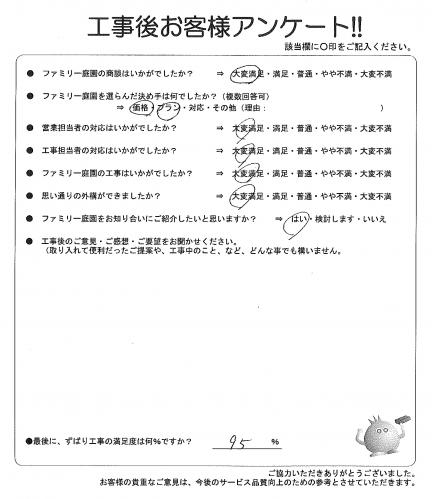 工事後お客様アンケート!!
該当欄に〇印をご記入ください。
● ファミリー庭園の商談はいかがでしたか? ⇒ 大変満足・満足・普通・やや不満・大変不満
● ファミリー庭園を選らんだ決め手は何でしたか?（複数回答可）
⇒ 価格・プラン・対応・その他（理由： ）
● 営業担当者の対応はいかがでしたか? ⇒ 大変満足・満足・普通・やや不満・大変不満
● 工事担当者の対応はいかがでしたか? ⇒ 大変満足・満足・普通・やや不満・大変不満
● ファミリー庭園の工事はいかがでしたか? ⇒ 大変満足・満足・普通・やや不満・大変不満
● 思い通りの外構ができましたか? ⇒ 大変満足・満足・普通・やや不満・大変不満
● ファミリー庭園をお知り合いにご紹介したいと思いますか? ⇒ はい・検討します・いいえ
● 工事後のご意見・ご感想・ご要望をお聞かせください。
（取り入れて便利だったご提案や、工事中のこと、など、どんな事でも構いません。
●最後に、ずばり工事の満足度は何%ですか? 95 %
ご協力いただきありがとうございました。
お客様の貴重なご意見は、今後のサービス品質向上のための参考とさせていただきます。